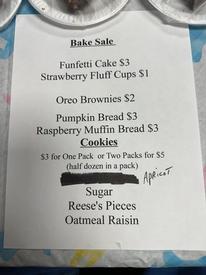 Bake Sale
Funfetti Cake $3
Strawberry Fluff Cups $1
Oreo Brownies $2
Pumpkin Bread $3
Raspberry Muffin Bread $3
Cookies
$3 for One Pack or Two Packs for $5
(half dozen in a pack)
APRICOT
Sugar
Reese's Pieces
Oatmeal Raisin